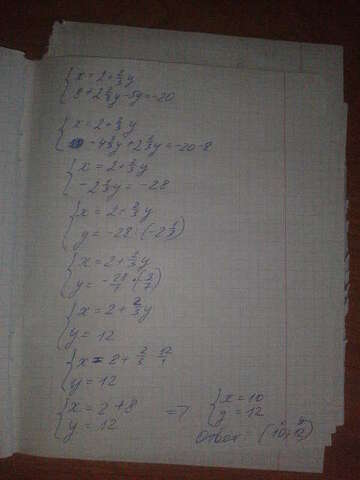 {x = 2 + 2/3 y
{8 + 2 2/3 y - 5y = -20
{x = 2 + 2/3 y
{-4 3/3 y + 2 2/3 y = -20 - 8
{x = 2 + 2/3 y
{-2 1/3 y = -28
{x = 2 + 2/3 y
{y = -28 : (-2 1/3)
{x = 2 + 2/3 y
{y = -28/1 · (-3/7)
{x = 2 + 2/3 y
{y = 12
{x = 2 + 2/3 · 12/1
{y = 12
{x = 2 + 8 => {x = 10
{y = 12 {y = 12
Ответ (10; 12)